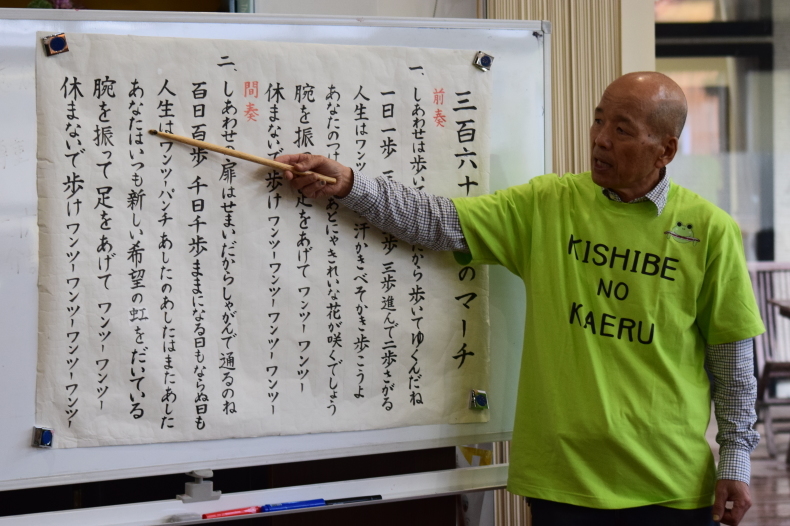 三百六十のマーチ
前奏
一、しあわせは歩いだから歩いてゆくんだね
一日一歩 三歩 三歩進んで二歩さがる
人生はワン汗かきべそかき歩こうよ
あなたのつあとにゃきれいな花が咲くでしょう
腕を振っ足をあげて ワンツー ワンツー
休まないで歩け ワンツーワンツーワンツー
間奏
二、しあわせの扉はせまいだからしゃがんで通るのね
百日百歩 千日千歩ままになる日もならぬ日も
人生はワンツーパンチ あしたのあしたはまたあした
あなたはいつも新しい希望の虹をだいている
腕を振って足をあげて ワンツー ワンツー
休まないで歩け ワンツーワンツーワンツー
KISHIBE
NO
KAERU